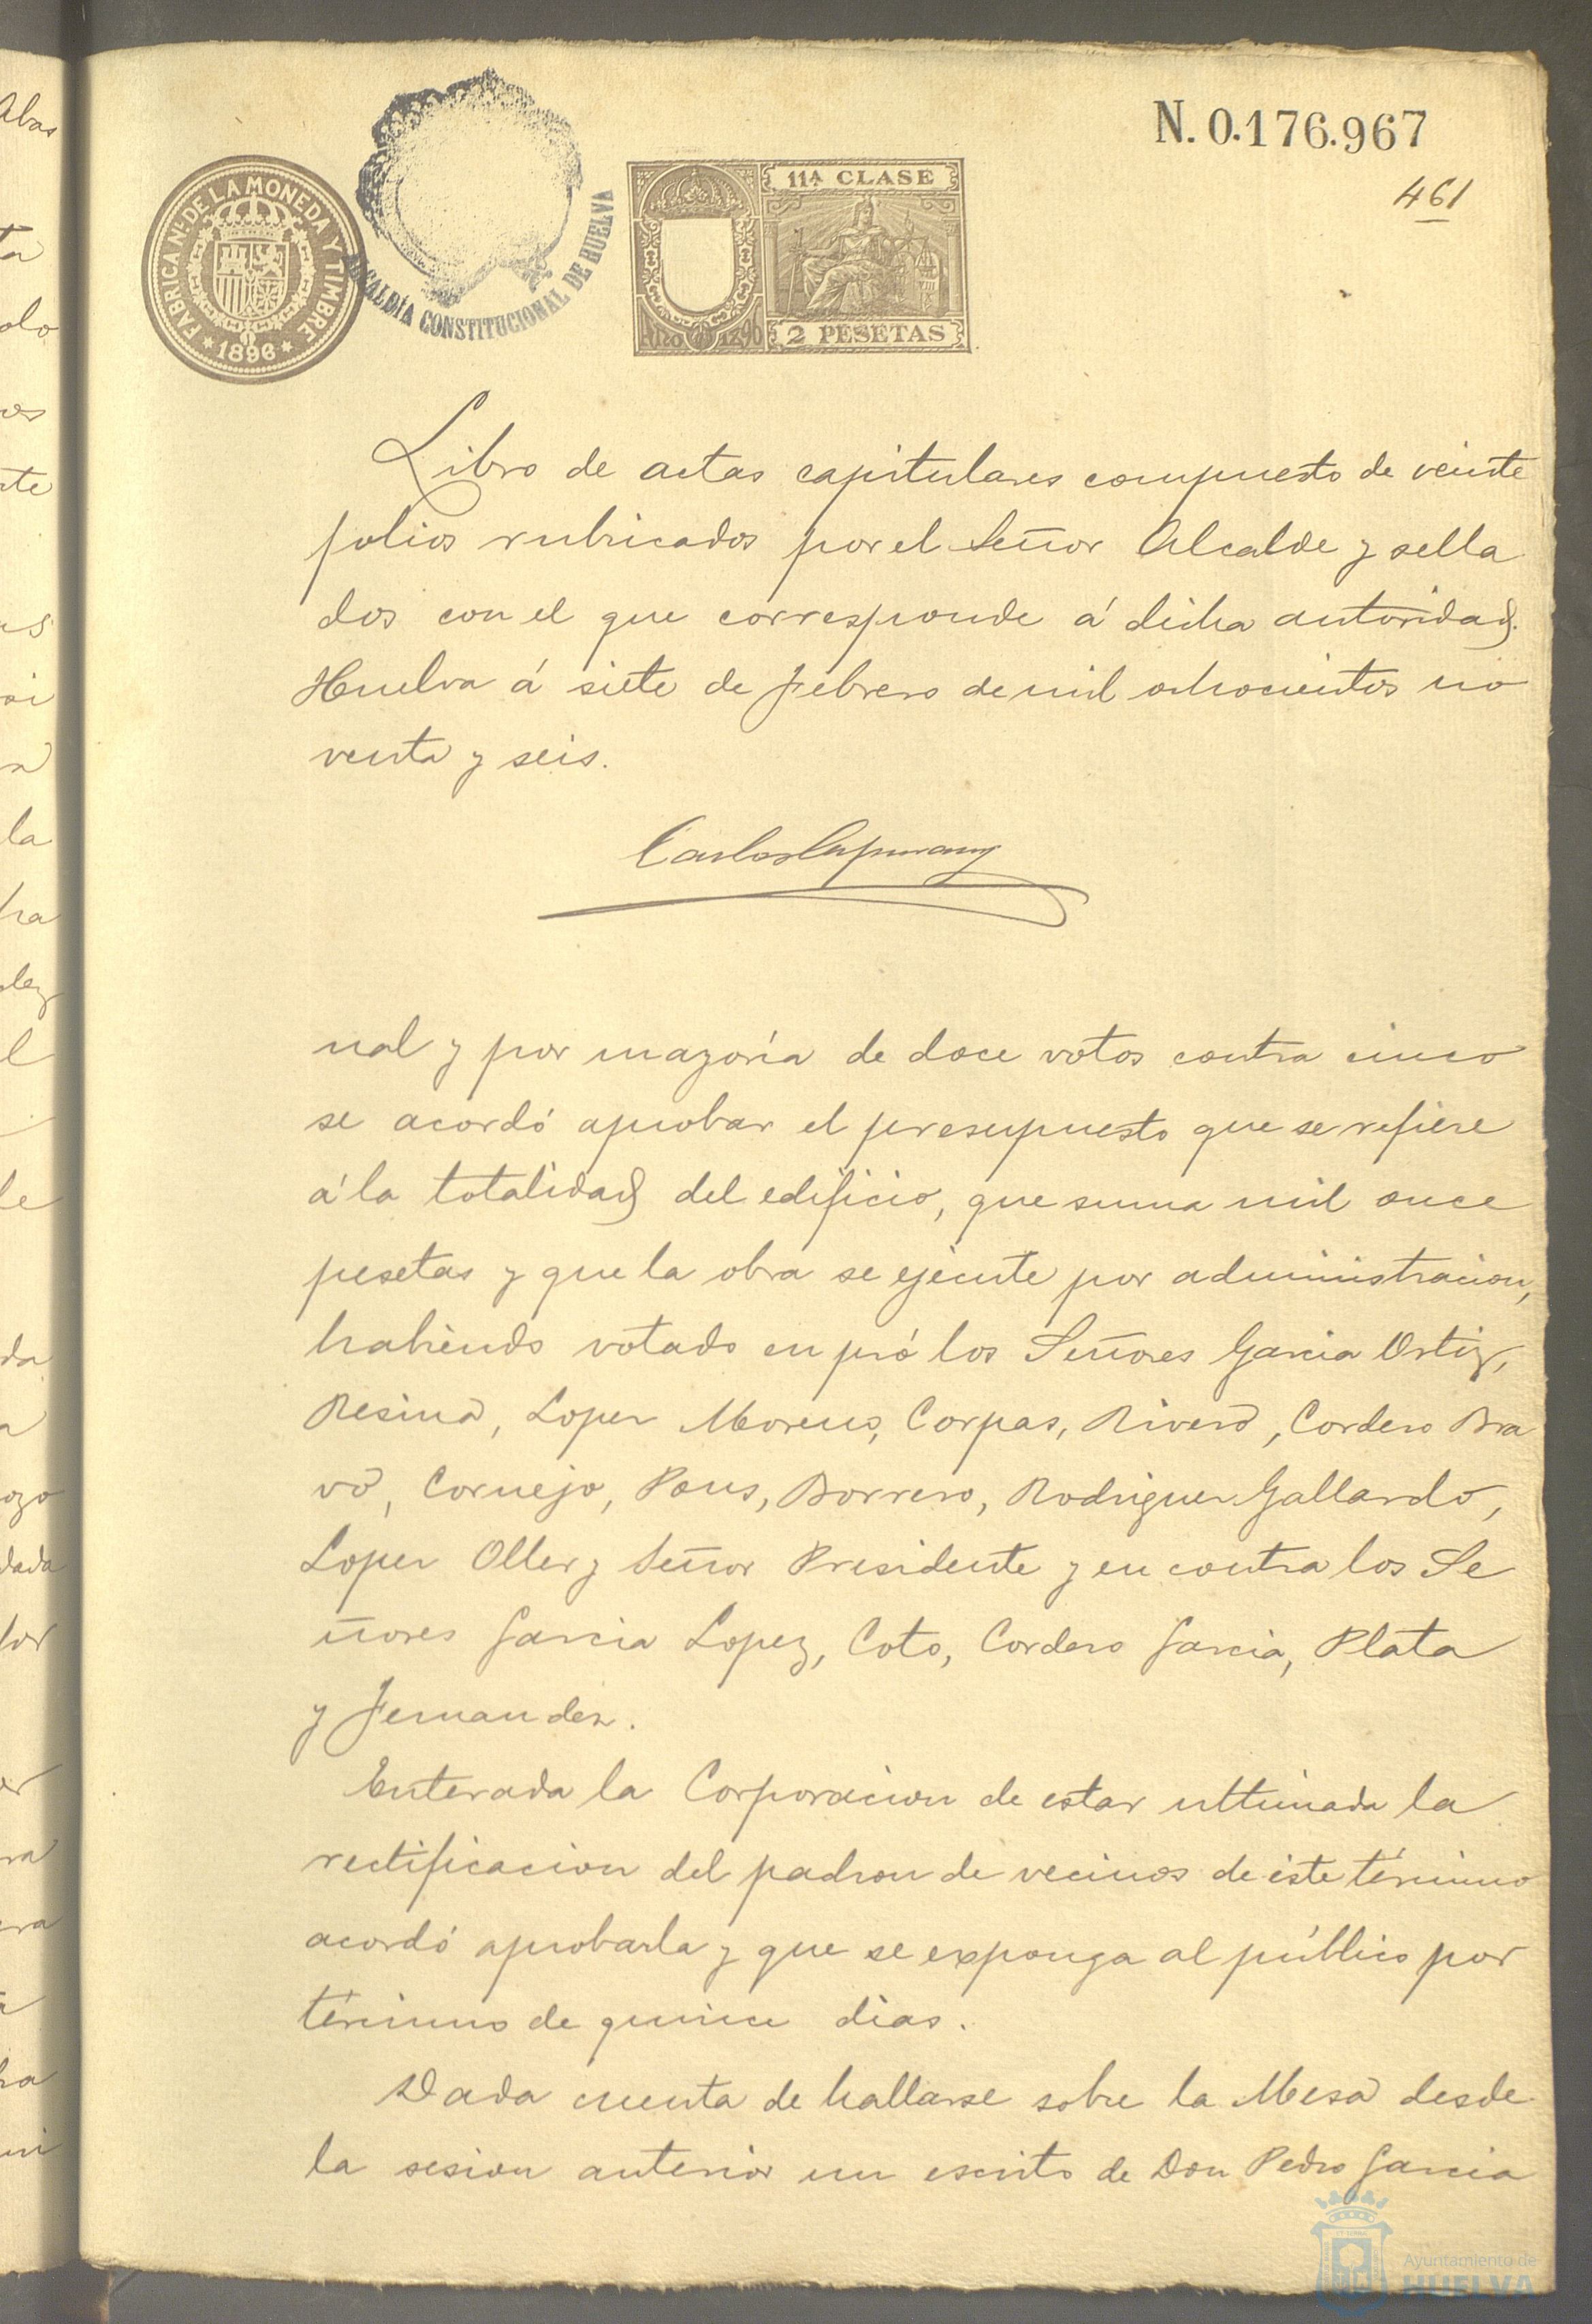 N. 0.176.967
461
FABRICA Nal DE LA MONEDA Y TIMBRE
* 1896 *
ALCALDÍA CONSTITUCIONAL DE HUELVA
11ª CLASE
2 PESETAS
Libro de actas capitulares compuesto de veinte
folios rubricados por el Señor Alcalde y sella
dos con el que corresponde á dicha autoridad.
Huelva á siete de Febrero de mil ochocientos no
venta y seis.
Carlos
nal y por mayoría de doce votos contra cinco
se acordó aprobar el presupuesto que se refiere
á la totalidad del edificio, que suma mil once
pesetas y que la obra se ejecute por administracion,
habiendo votado en pró los Señores Garcia Ortiz,
Resina, Lopez Moreno, Corpas, Rivero, Cordero Bra
vo, Cornejo, Pons, Borrero, Rodriguez Gallardo,
Lopez Oller y Señor Presidente y en contra los Se
ñores Garcia Lopez, Coto, Cordero Garcia, Plata
y Fernandez.
Enterada la Corporacion de estar ultimada la
rectificacion del padron de vecinos de éste término
acordó aprobarla y que se exponga al público por
término de quince dias.
Dada cuenta de hallarse sobre la Mesa desde
la sesion anterior un escrito de Don Pedro Garcia
Ayuntamiento de
HUELVA